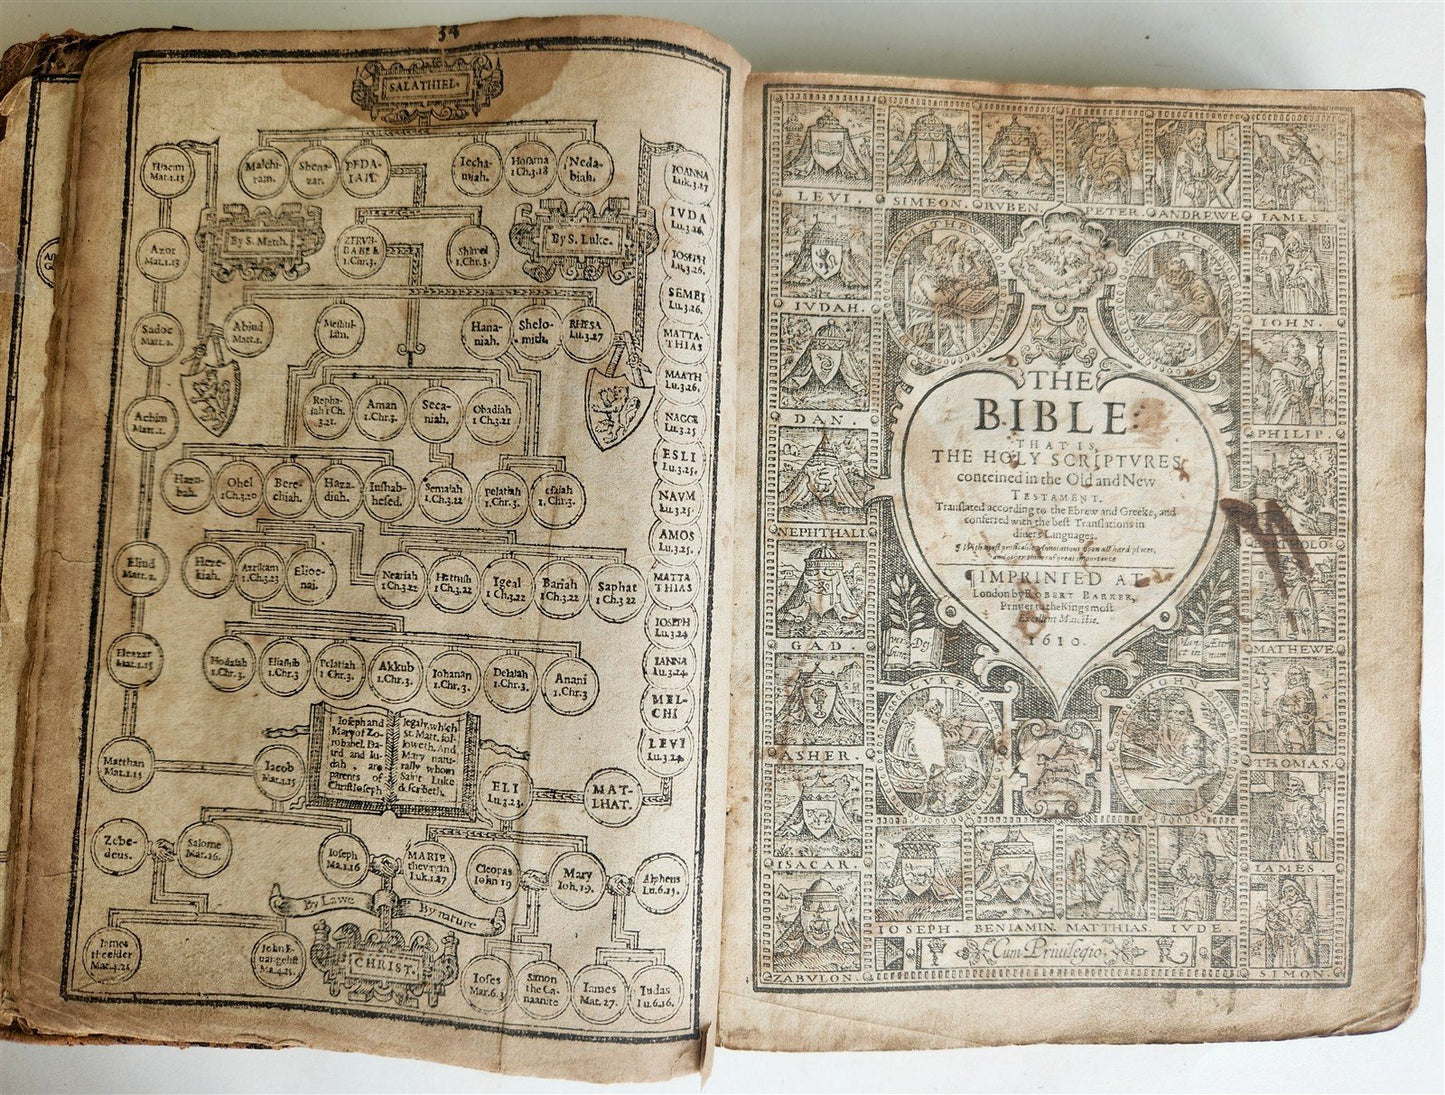 34
SALATHIEL.
Malchi-
ram.
Shena-
zar.
PEDA-
IAH.
Iecha-
miah.
Hosama
1 Ch.3.18
Neda-
biah.
By S. Matth.
By S. Luke.
ZERVB-
BABEL
1.Chr.3.
Shimei
1.Chr.3.
Abiud
Matt.1.
Meshul-
lam.
Hana-
niah.
Shelo-
mith.
RHESA
Lu.3.27
Repha-
iah 1 Ch.
3.21.
Arnan
1.Chr.3.
Seca-
niah.
Obadiah
1 Chr.3.21
Hazu-
bah.
Ohel
1 Ch.3.20
Bere-
chiah.
Haza-
diah.
Iushab-
hesed.
Semaiah
1.Ch.3.22
pelatiah
1 Chr.3.
esaiah
1.Chr.3.
Heze-
kiah.
Azrikam
1.Ch.3.23
Elioe-
nai.
Neariah
1 Ch.3.22
Hattush
1 Ch.3.22
Igeal
1 Ch.3.22
Bariah
1 Ch.3.22
Saphat
1 Ch.3 22
Hodaiah
1.Chr.3.
Eliashib
1.Chr.3
Pelaiah
1.Chr.3.
Akkub
1.Chr.3.
Iohanan
1.Chr.3.
Delaiah
1.Chr.3.
Anani
1.Chr.3
Azor
Mat.1.13
Sadoc
Matt.1.
Achim
Matt.1.
Eliud
Matt.1.
Eleazar
Mat.1.15
Matthan
Mat.1.15
Iacob
Mat.1.15
IOANNA
Luk.3.27
IVDA
Lu.3.26.
IOSEPH
Lu.3.26.
SEMEI
Lu.3.26.
MATTA-
THIAS
MAATH
Lu.3.26.
NAGGE
Lu.3.25
ESLI
Lu.3.25.
NAVM
Lu.3.25.
AMOS
Lu.3.25.
MATTA
THIAS
IOSEPH
Lu.3.24
IANNA
Lu.3.24.
MEL-
CHI
LEVI
Lu.3.24.
MAT-
LHAT.
ELI
Lu.3.23.
Ioseph and
Mary of Zo-
robabel, Da-
uid and Iu-
dah, are
parents of
Christ Ioseph
legaly, which
St. Matt. fol-
loweth. And
Mary natu-
rally whom
Saint Luke
describeth.
Zebe-
deus.
Salome
Mar.16.
Ioseph
Ma.1.16
MARIE
the virgin
Luk.1.27
Cleopas
Iohn 19
Mary
Ioh.19.
Alpheus
Lu.6.15.
By Lawe
By nature
CHRIST.
Iames
the elder
Mat.4.21.
Iohn E-
uangelist
Mat.4.21.
Ioses
Mar.6.3
Simon
the Ca-
naanite
Iames
Mat.27.
Iudas
Lu.6.16.
LEVI.
SIMEON.
RVBEN
PETER.
ANDREWE
IAMES
MATHEW
MARC
IVDAH.
IOHN.
DAN.
PHILIP.
NEPHTHALI
GAD.
MATHEWE
ASHER.
THOMAS.
ISACAR.
IAMES
ZABVLON.
SIMON.
THE
BIBLE:
THAT IS,
THE HOLY SCRIPTVRES
conteined in the Old and New
TESTAMENT.
Translated according to the Ebrew and Greeke, and
conferred with the best Translations in
diuers Languages.
¶ With most profitable Annotations vpon all hard places,
and other things of great importance
¶ IMPRINTED AT
London by ROBERT BARKER,
Printer to the Kings most
Excellent Maiestie.
1610.
LVKE
IOHN
IOSEPH.
BENIAMIN.
MATTHIAS.
IVDE
Cum Priuilegio